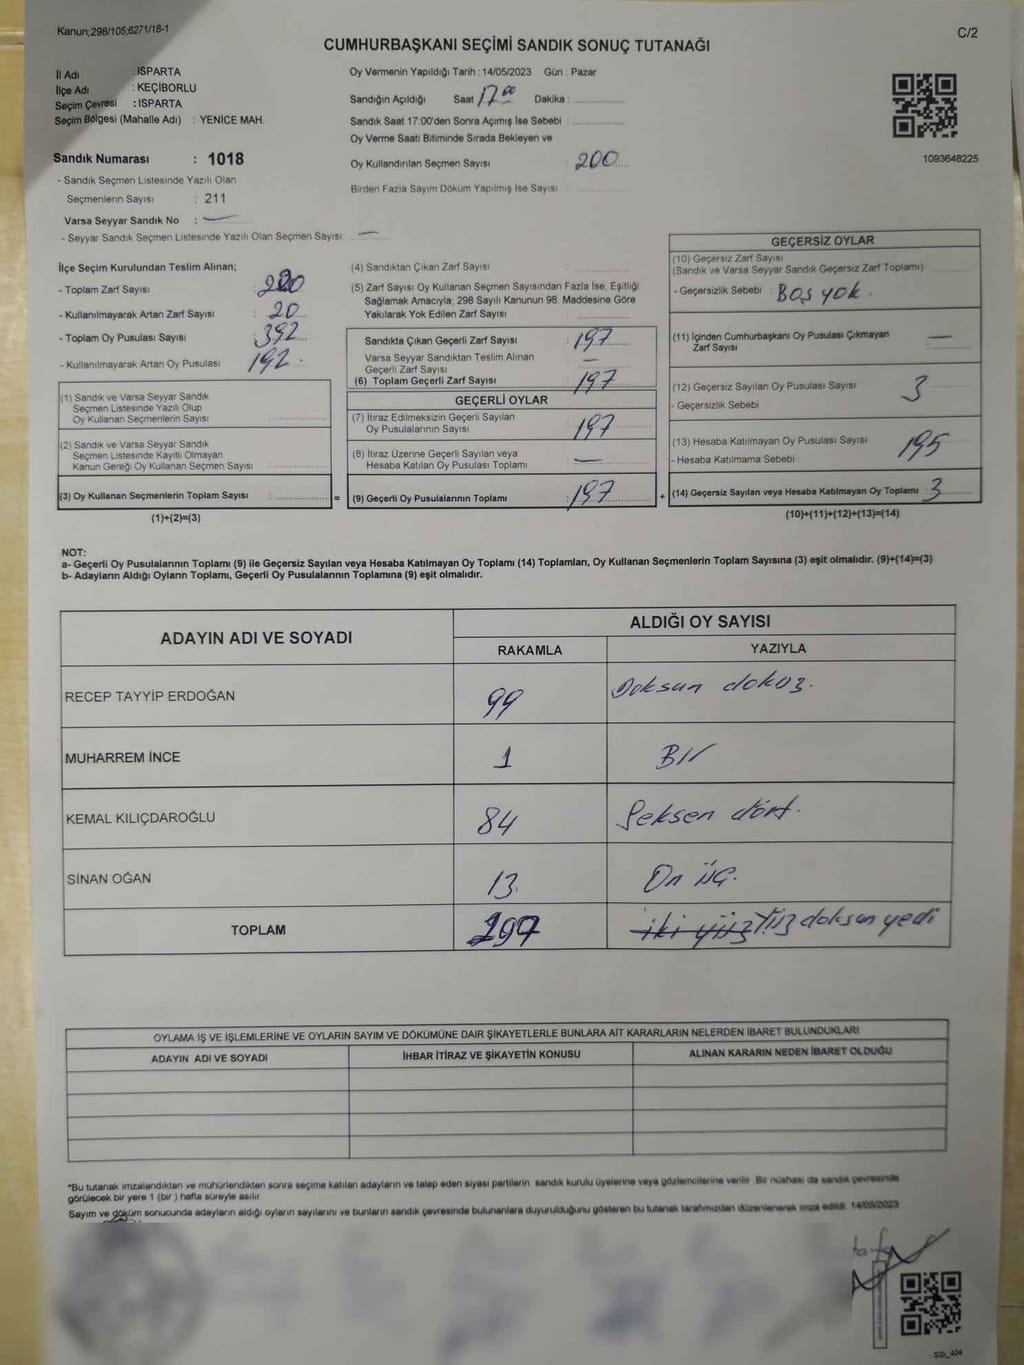 Kanun;298/105;6271/18-1
C/2
CUMHURBAŞKANI SEÇİMİ SANDIK SONUÇ TUTANAĞI
İl Adı : ISPARTA
İlçe Adı : KEÇİBORLU
Seçim Çevresi : ISPARTA
Seçim Bölgesi (Mahalle Adı) : YENİCE MAH.
Sandık Numarası : 1018
- Sandık Seçmen Listesinde Yazılı Olan
Seçmenlerin Sayısı : 211
Varsa Seyyar Sandık No : —
- Seyyar Sandık Seçmen Listesinde Yazılı Olan Seçmen Sayısı: —
Oy Vermenin Yapıldığı Tarih : 14/05/2023 Gün : Pazar
Sandığın Açıldığı Saat 17.00 Dakika :
Sandık Saat 17:00'den Sonra Açımış İse Sebebi :
Oy Verme Saati Bitiminde Sırada Bekleyen ve
Oy Kullandırılan Seçmen Sayısı : 200
Birden Fazla Sayım Döküm Yapılmış İse Sayısı :
1093648225
İlçe Seçim Kurulundan Teslim Alınan;
- Toplam Zarf Sayısı : 220
- Kullanılmayarak Artan Zarf Sayısı : 20
- Toplam Oy Pusulası Sayısı : 392
- Kullanılmayarak Artan Oy Pusulası 192
(1) Sandık ve Varsa Seyyar Sandık
Seçmen Listesinde Yazılı Olup
Oy Kullanan Seçmenlerin Sayısı :
(2) Sandık ve Varsa Seyyar Sandık
Seçmen Listesinde Kayıtlı Olmayan
Kanun Gereği Oy Kullanan Seçmen Sayısı :
(3) Oy Kullanan Seçmenlerin Toplam Sayısı : =
(1)+(2)=(3)
(4) Sandıktan Çıkan Zarf Sayısı :
(5) Zarf Sayısı Oy Kullanan Seçmen Sayısından Fazla İse, Eşitliği
Sağlamak Amacıyla; 298 Sayılı Kanunun 98. Maddesine Göre
Yakılarak Yok Edilen Zarf Sayısı :
Sandıkta Çıkan Geçerli Zarf Sayısı : 197
Varsa Seyyar Sandıktan Teslim Alınan
Geçerli Zarf Sayısı : —
(6) Toplam Geçerli Zarf Sayısı : 197
GEÇERLİ OYLAR
(7) İtiraz Edilmeksizin Geçerli Sayılan
Oy Pusulalarının Sayısı : 197
(8) İtiraz Üzerine Geçerli Sayılan veya
Hesaba Katılan Oy Pusulası Toplamı : —
(9) Geçerli Oy Pusulalarının Toplamı : 197 +
GEÇERSİZ OYLAR
(10) Geçersiz Zarf Sayısı
(Sandık ve Varsa Seyyar Sandık Geçersiz Zarf Toplamı) :
- Geçersizlik Sebebi : Boş yok.
(11) İçinden Cumhurbaşkanı Oy Pusulası Çıkmayan
Zarf Sayısı : —
(12) Geçersiz Sayılan Oy Pusulası Sayısı : 3
- Geçersizlik Sebebi :
(13) Hesaba Katılmayan Oy Pusulası Sayısı : 195
- Hesaba Katılmama Sebebi :
(14) Geçersiz Sayılan veya Hesaba Katılmayan Oy Toplamı : 3
(10)+(11)+(12)+(13)=(14)
NOT:
a- Geçerli Oy Pusulalarının Toplamı (9) ile Geçersiz Sayılan veya Hesaba Katılmayan Oy Toplamı (14) Toplamları, Oy Kullanan Seçmenlerin Toplam Sayısına (3) eşit olmalıdır. (9)+(14)=(3)
b- Adayların Aldığı Oyların Toplamı, Geçerli Oy Pusulalarının Toplamına (9) eşit olmalıdır.
ADAYIN ADI VE SOYADI ALDIĞI OY SAYISI
RAKAMLA YAZIYLA
RECEP TAYYİP ERDOĞAN 99 Doksan dokuz.
MUHARREM İNCE 1 Bir
KEMAL KILIÇDAROĞLU 84 Seksen dört.
SİNAN OĞAN 13 On üç.
TOPLAM 197 iki yüz Yüz doksan yedi
OYLAMA İŞ VE İŞLEMLERİNE VE OYLARIN SAYIM VE DÖKÜMÜNE DAİR ŞİKAYETLERLE BUNLARA AİT KARARLARIN NELERDEN İBARET BULUNDUKLARI
ADAYIN ADI VE SOYADI İHBAR İTİRAZ VE ŞİKAYETİN KONUSU ALINAN KARARIN NEDEN İBARET OLDUĞU
*Bu tutanak imzalandıktan ve mühürlendikten sonra seçime katılan adayların ve talep eden siyasi partilerin sandık kurulu üyelerine veya gözlemcilerine verilir. Bir nüshası da sandık çevresinde
görülecek bir yere 1 (bir ) hafta süreyle asılır.
Sayım ve döküm sonucunda adayların aldığı oyların sayılarını ve bunların sandık çevresinde bulunanlara duyurulduğunu gösteren bu tutanak tarafımızdan düzenlenerek imza edildi. 14/05/2023